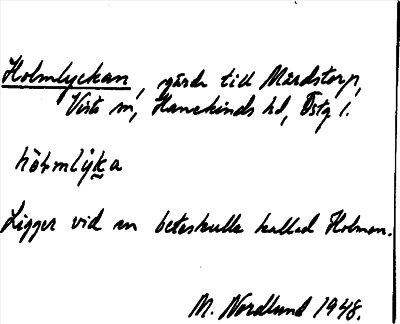 Holmlyckan, gärde till Mårdstorp,
Vists sn, Hanekinds hd, Östg l.
hòlmlỳka
Ligger vid en beteskulle kallad Holmen.
M. Nordlund 1948.